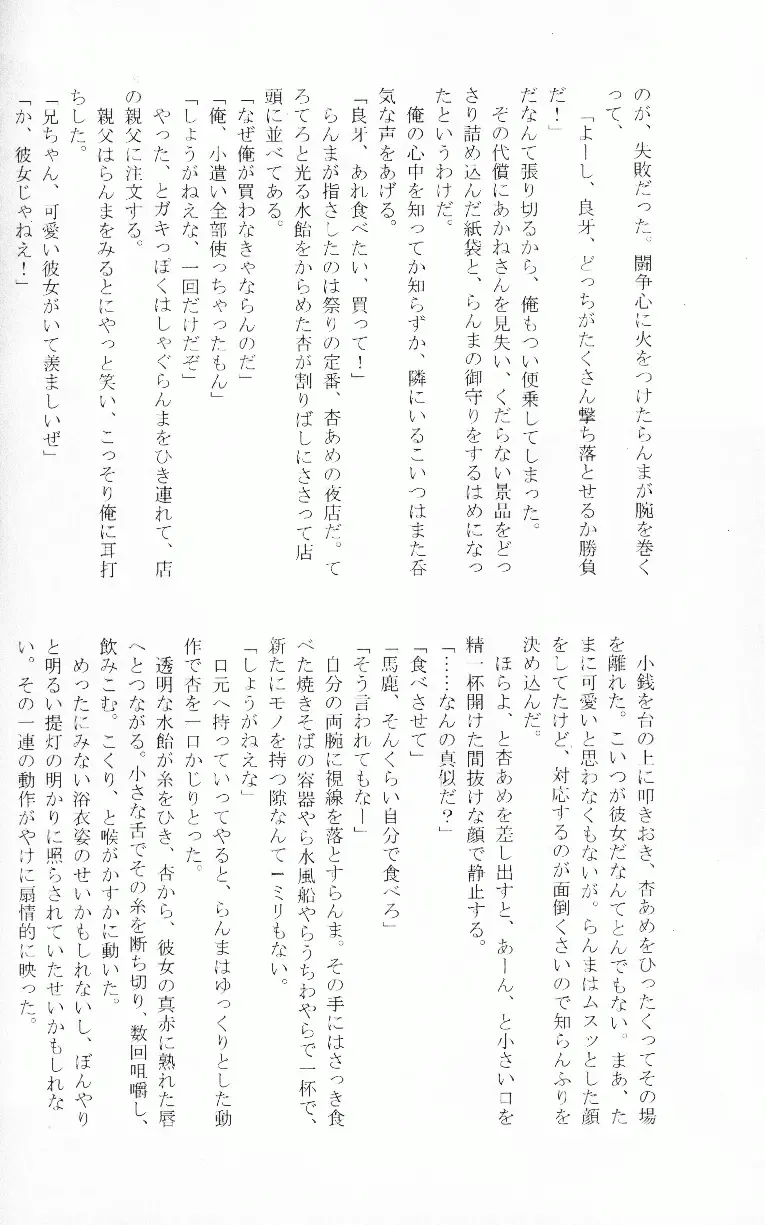 のが、失敗だった。闘争心に火をつけたらんまが腕を巻く
って、
「よーし、良牙、どっちがたくさん撃ち落とせるか勝負
だ！」
だなんて張り切るから、俺もつい便乗してしまった。
その代償にあかねさんを見失い、くだらない景品をどっ
さり詰め込んだ紙袋と、らんまの御守りをするはめになっ
たというわけだ。
俺の心中を知ってか知らずか、隣にいるこいつはまた呑
気な声をあげる。
「良牙、あれ食べたい、買って！」
らんまが指さしたのは祭りの定番、杏あめの夜店だ。て
ろてろと光る水飴をからめた杏が割りばしにささって店
頭に並べてある。
「なぜ俺が買わなきゃならんのだ」
「俺、小遣い全部使っちゃったもん」
「しょうがねえな、一回だけだぞ」
やった、とガキっぽくはしゃぐらんまをひき連れて、店
の親父に注文する。
親父はらんまをみるとにやっと笑い、こっそり俺に耳打
ちした。
「兄ちゃん、可愛い彼女がいて羨ましいぜ」
「か、彼女じゃねえ！」
小銭を台の上に叩きおき、杏あめをひったくってその場
を離れた。こいつが彼女だなんてとんでもない。まあ、た
まに可愛いと思わなくもないが。らんまはムスッとした顔
をしてたけど、対応するのが面倒くさいので知らんふりを
決め込んだ。
ほらよ、と杏あめを差し出すと、あーん、と小さい口を
精一杯開けた間抜けな顔で静止する。
「……なんの真似だ？」
「食べさせて」
「馬鹿、そんくらい自分で食べろ」
「そう言われてもなー」
自分の両腕に視線を落とすらんま。その手にはさっき食
べた焼きそばの容器やら水風船やらうちわやらで一杯で、
新たにモノを持つ隙なんて一ミリもない。
「しょうがねえな」
口元へ持っていってやると、らんまはゆっくりとした動
作で杏を一口かじりとった。
透明な水飴が糸をひき、杏から、彼女の真赤に熟れた唇
へとつながる。小さな舌でその糸を断ち切り、数回咀嚼し、
飲みこむ。こくり、と喉がかすかに動いた。
めったにみない浴衣姿のせいかもしれないし、ぼんやり
と明るい提灯の明かりに照らされていたせいかもしれな
い。その一連の動作がやけに扇情的に映った。